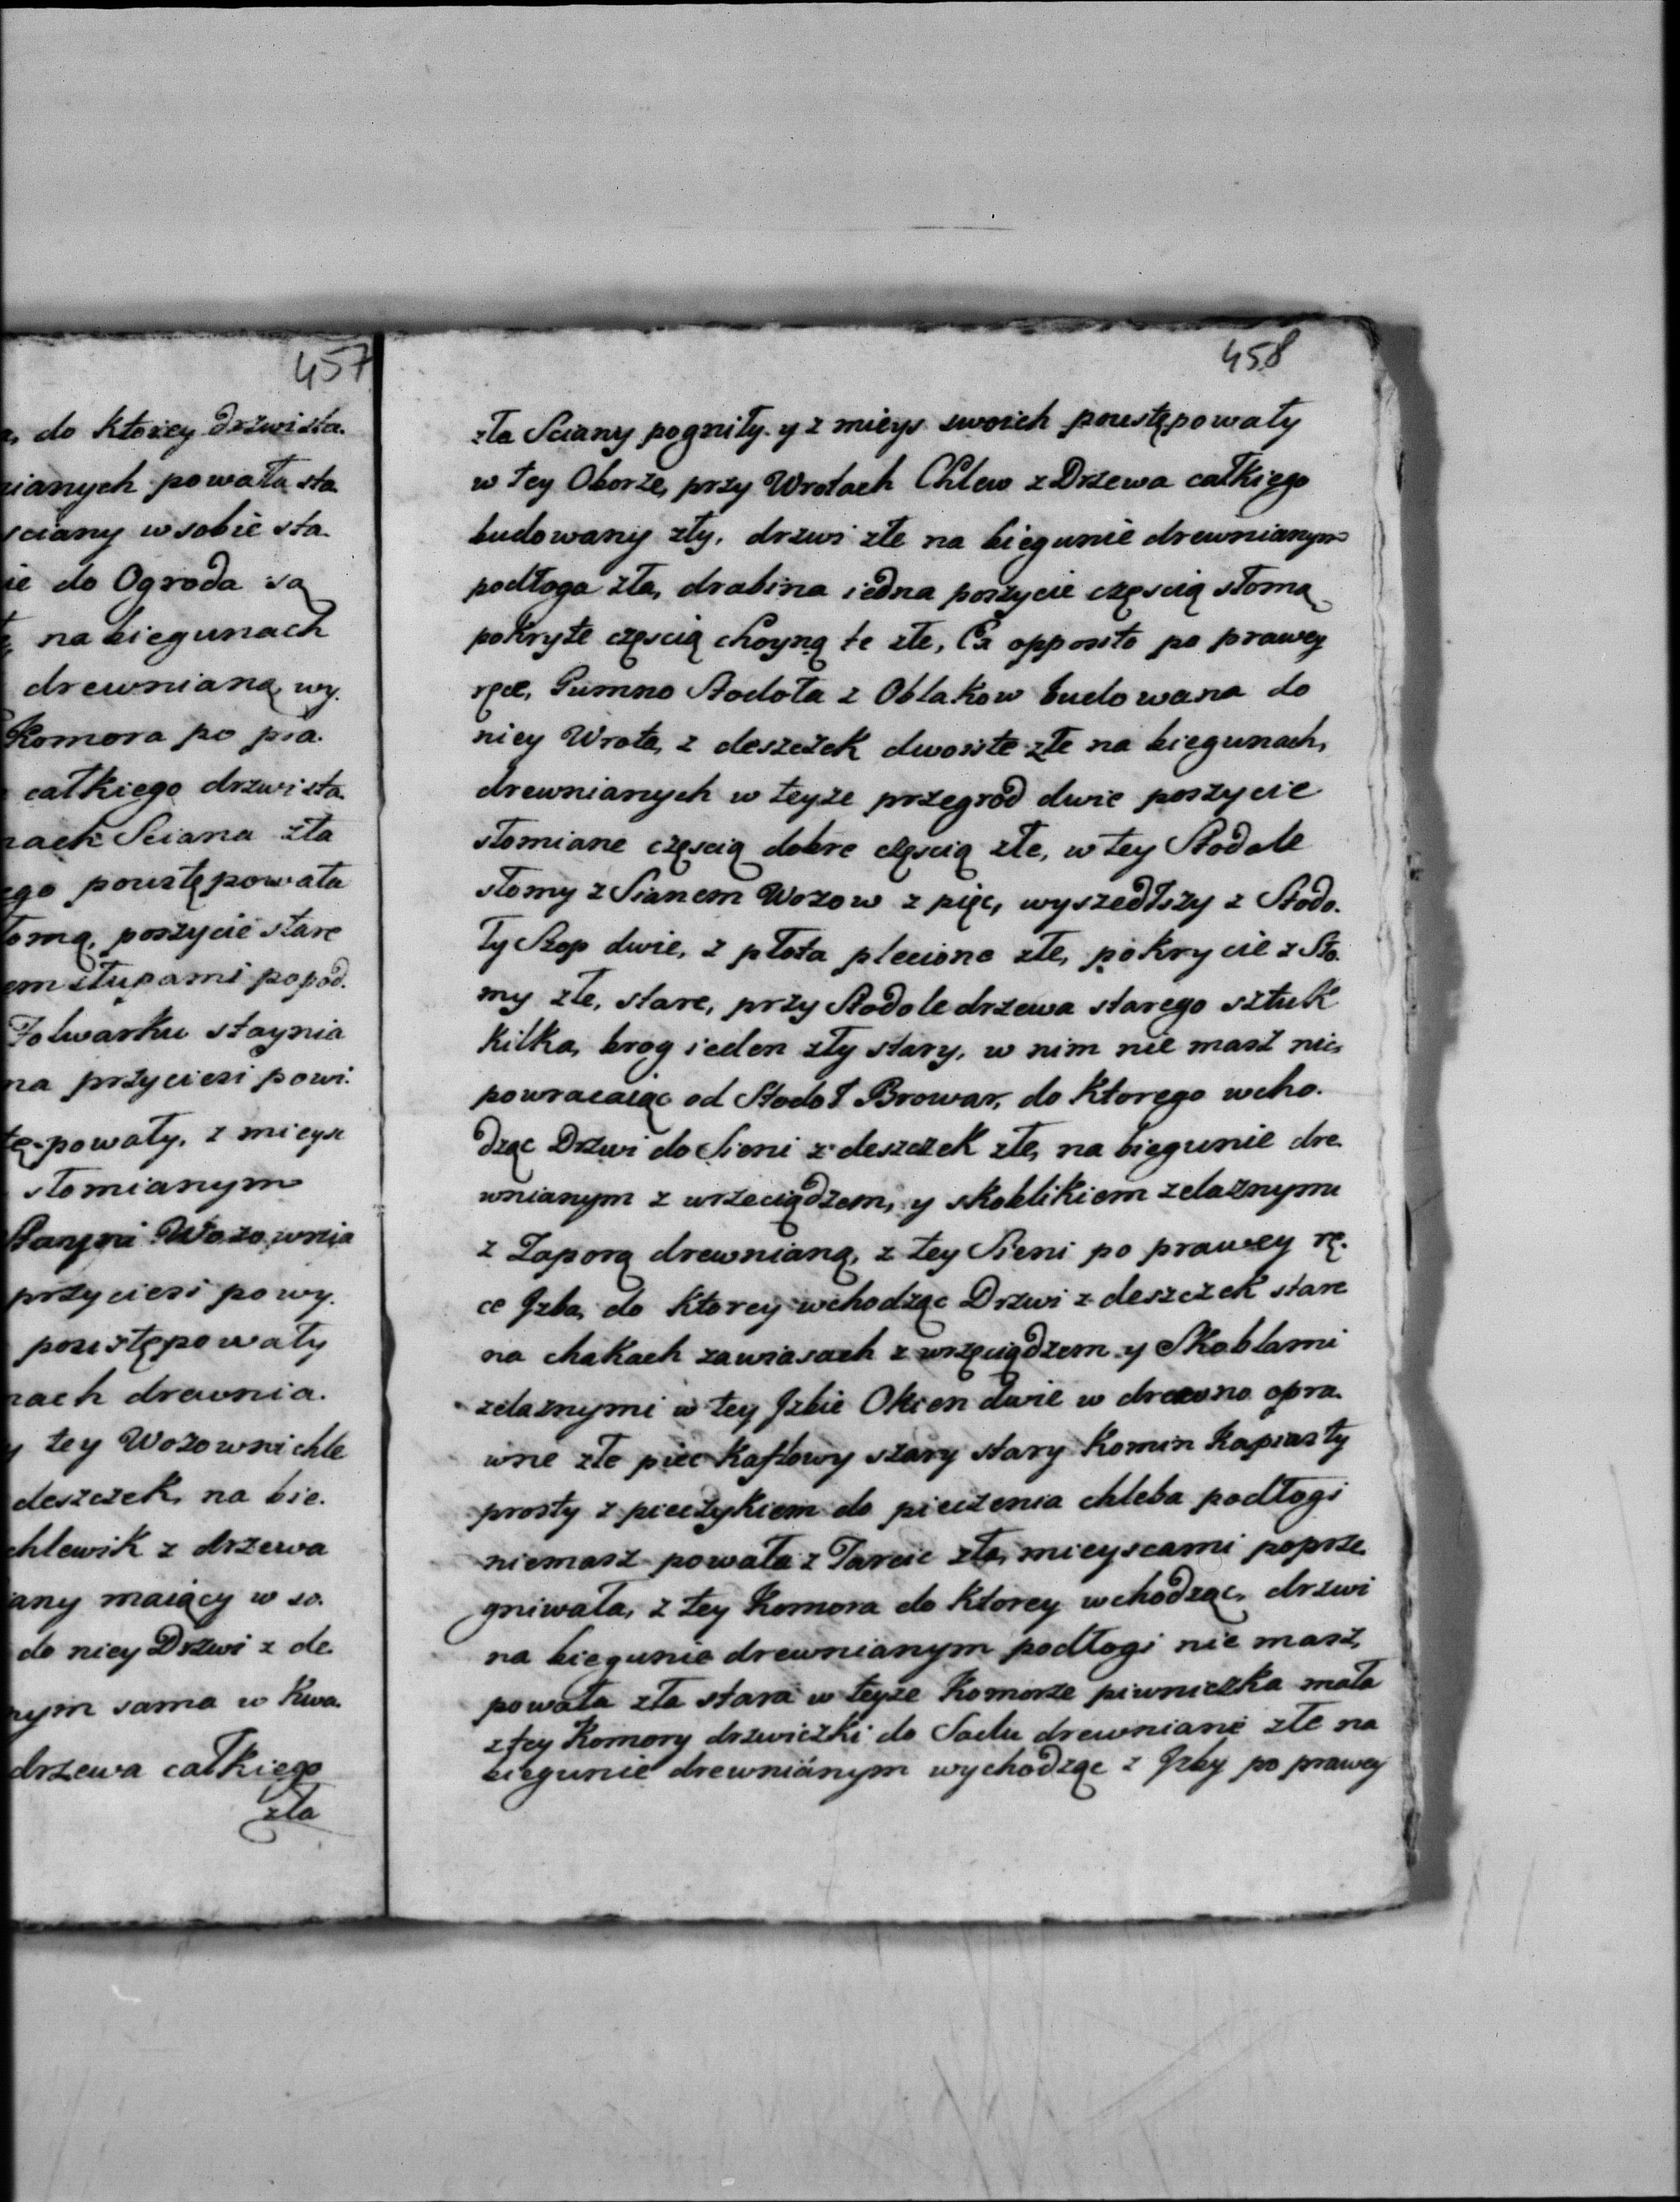 457
do Ktorey drzwi sta.
nianych powała sta
sciany w sobie sta.
do Ogroda są
na biegunach
drewnianą, wy.
Komora po pra.
całkiego drzwi sta.
nach Sciana zła
ego poustępowała
łomą, poszycie stare
em słupami popod.
Folwarku staynia
na przyciesi powi.
tę-powały, z mieysc
słomianym
Stayni Wozownia
przyciesi powy.
poustępowały
nach drewnia.
y tey Wozowni chle
deszczek, na bie.
chlewik z drzewa
iany maiący w so.
do niey Drzwi z de.
nym sama w Kwa.
drzewa całkiego
zła
458
zła Sciany pogniły. y z mieys swoich poustępowały
w tey Oborze, przy Wrotach Chlew z Drzewa całkiego
budowany zły, drzwi złe na biegunie drewnianym
podłoga zła, drabina iedna poszycie częscią słomą
pokryte częscią choyną te złe, Ex opposito po prawey
ręce, Gumno Stodoła z Oblakow budowana do
niey Wrota, z deszczek dwoiste złe na biegunach,
drewnianych w teyze przegrod dwie poszycie
słomiane częscią dobre częscią złe, w tey Stodole
słomy z Sianem Wozow z pięc, wyszedłszy z Stodo.
ły Szop dwie, z płota plecione złe, pokrycie z Sło.
my złe, stare, przy Stodole drzewa starego sztuk
Kilka, brog ieden zły stary, w nim nie masz nic,
powracaiąc od Stodoł Browar, do Ktorego wcho.
dząc Drzwi do Sieni z deszczek złe, na biegunie dre.
wnianym z wrzeciądzem, y skoblikiem zelaznym
z Zaporą drewnianą, z tey Sieni po prawey rę.
ce Jzba, do Ktorey wchodząc Drzwi z deszczek stare
na chakach zawiasach z wrzęciądzem y Skoblami
zelaznymi w tey Jzbie Okien dwie w drewno opra.
wne złe piec Kaflowy szary stary Komin Kapiasty
prosty z pieczykiem do pieczenia chleba podłogi
niemasz powała z Tarcic zła, mieyscami poprze.
gniwała, z tey Komora do Ktorey wchodząc, drzwi
na biegunie drewnianym podłogi nie masz,
powała zła stara w teyze Komorze piwniczka mała
z tey Komory drzwiczki do Sadu drewniane złe na
biegunie drewnianym wychodząc z Jzby po prawey